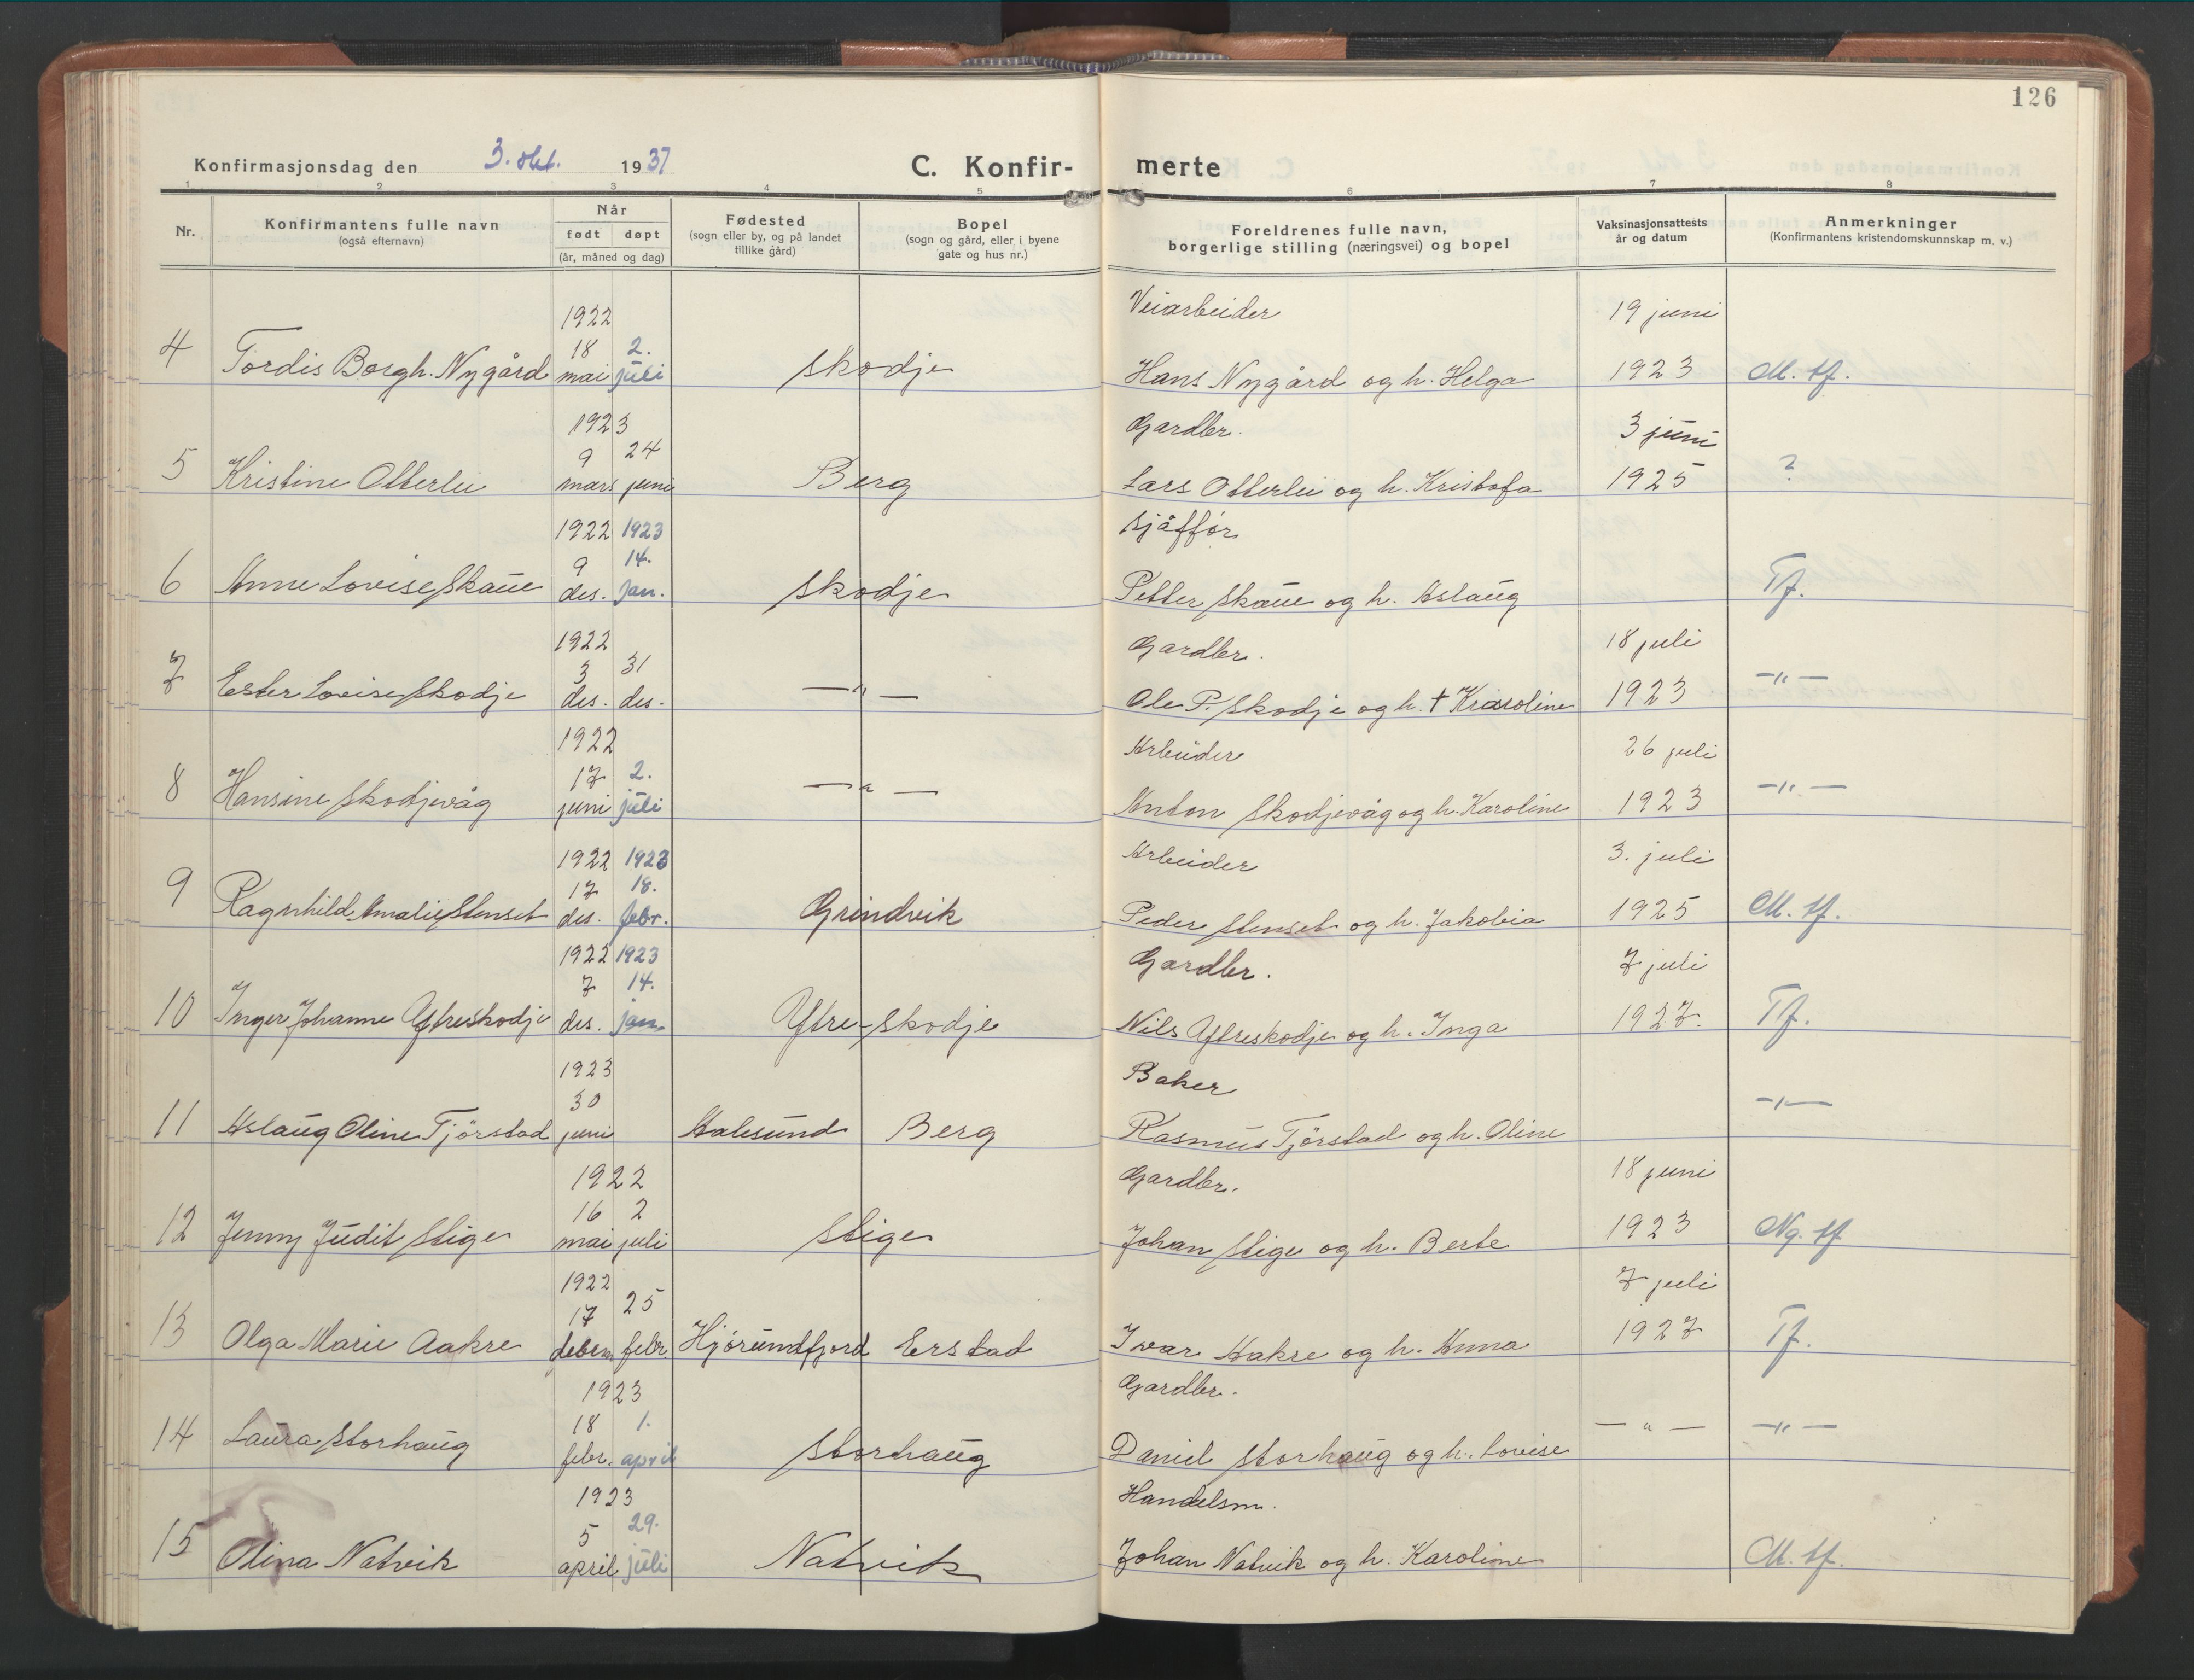 126
Konfirmasjonsdag den 3. okt. 1937
C. Konfir- merte
1 2 3 4 5 6 7 8
Nr.
Konfirmantens fulle navn
(også efternavn)
Når
født døpt
(år, måned og dag)
Fødested
(sogn eller by, og på landet
tillike gård)
Bopel
(sogn og gård, eller i byene
gate og hus nr.)
Foreldrenes fulle navn,
borgerlige stilling (næringsvei) og bopel
Vaksinasjonsattests
år og datum
Anmerkninger
(Konfirmantens kristendomskunnskap m. v.)
1922 Veiarbeider 19 juni
4 Tordis Borgh. Nygård 18 mai 2. juli Skodje Hans Nygård og h. Helga 1923 M. tf.
1923 Gardbr. 3 juni
5 Kristine Otterlei 9 mars 24 juni Berg Lars Otterlei og h. Kristofa 1925 ?
1922 1923 Sjåffør
6 Anne Lovise Skaue 9 des. 14. jan. Skodje Petter Skaue og h. Aslaug Tf.
1922 Gardbr. 18 juli
7 Ester Lovise Skodje 3 des. 31 des. —"— Ole P. Skodje og h. † Karoline 1923 —"—
1922 Arbeider 26 juli
8 Hansine Skodjevåg 17 juni 2. juli —"— Anton Skodjevåg og h. Karoline 1923 —"—
1922 1923 Arbeider 3. juli
9 Ragnhild Amalie Stenset 17 des. 18. febr. Grindvik Peder Stenset og h. Jakobia 1925 M. tf.
1922 1923 Gardbr. 7 juli
10 Inger Johanne Ytreskodje 7 des. 14. jan. Ytre-Skodje Nils Ytreskodje og h. Inga 1927. Tf.
1923 Baker
11 Aslaug Oline Tjørstad 30 juni Aalesund Berg Rasmus Tjørstad og h. Oline —"—
1922 Gardbr. 18 juni
12 Jenny Judit Stige 16 mai 2 juli Stige Johan Stige og h. Berte 1923 Ng. tf
1922 7 juli
13 Olga Marie Aakre 17 25 febr. Hjørundfjord Erstad Ivar Aakre og h. Anna 1927 Tf.
1923 Gardbr.
14 Laura Storhaug 18 febr. 1. april Storhaug Daniel Storhaug og h. Lovise —"— —"—
1923 Handelsm.
15 Olina Natvik 5 april 29. juli Natvik Johan Natvik og h. Karoline M. tf.